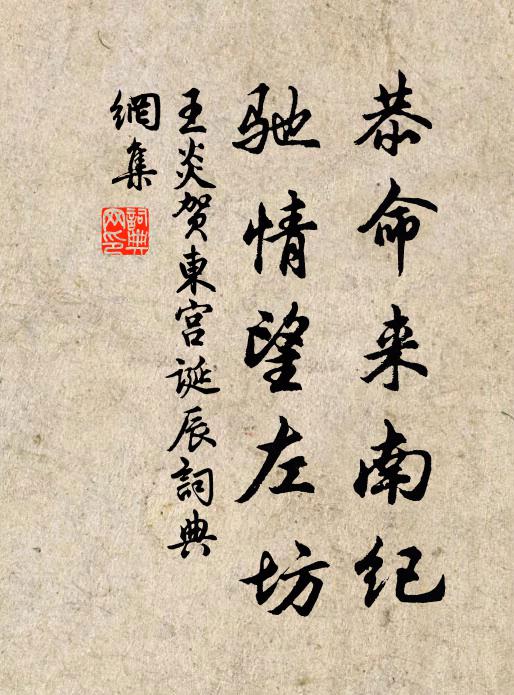 恭命来南纪
驰情望左坊
王炎贺東宫诞辰詞典
網集
詞典
网印